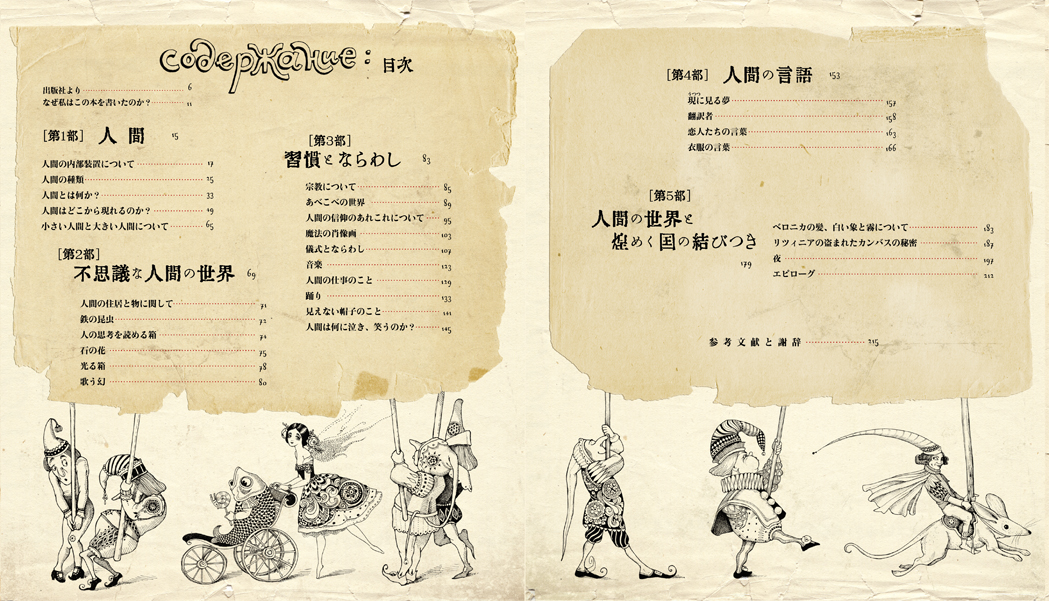 содержание: 目次
出版社より 6
なぜ私はこの本を書いたのか? 11
[第1部] 人間 15
人間の内部装置について 17
人間の種類 25
人間とは何か? 33
人間はどこから現れるのか? 49
小さい人間と大きい人間について 65
[第2部]
不思議な人間の世界 69
人間の住居と物に関して 71
鉄の昆虫 72
人の思考を読める箱 74
石の花 75
光る箱 78
歌う幻 80
[第3部]
習慣とならわし 83
宗教について 85
あべこべの世界 89
人間の信仰のあれこれについて 95
魔法の肖像画 103
儀式とならわし 107
音楽 123
人間の仕事のこと 129
踊り 133
見えない帽子のこと 141
人間は何に泣き、笑うのか? 145
[第4部] 人間の言語 153
うつつ
現に見る夢 157
翻訳者 158
恋人たちの言葉 163
衣服の言葉 166
[第5部]
人間の世界と
煌めく国の結びつき
179
ベロニカの髪、白い象と霧について 183
リツィニアの盗まれたカンバスの秘密 187
夜 197
エピローグ 212
参考文献と謝辞 215